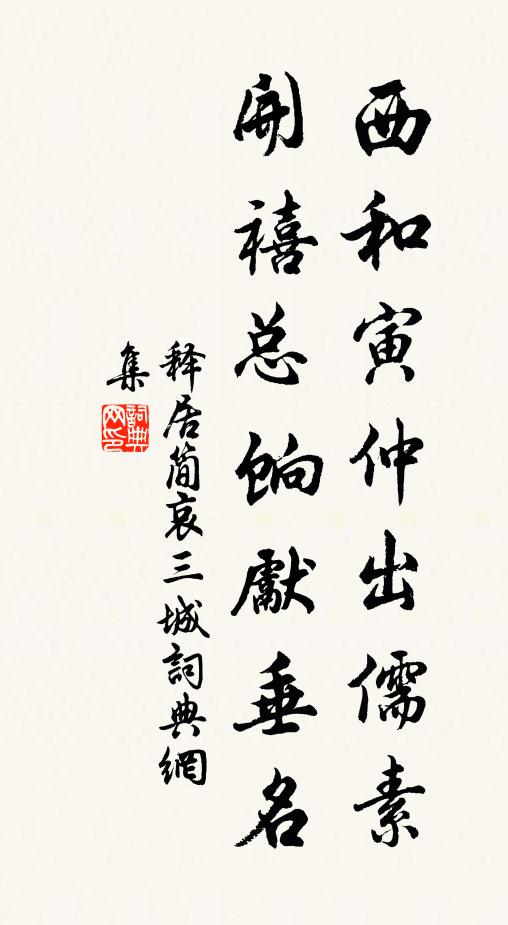 西和寅仲出儒素
開禧总餉獻垂名
释居簡哀三城詞典網
集
詞典网印